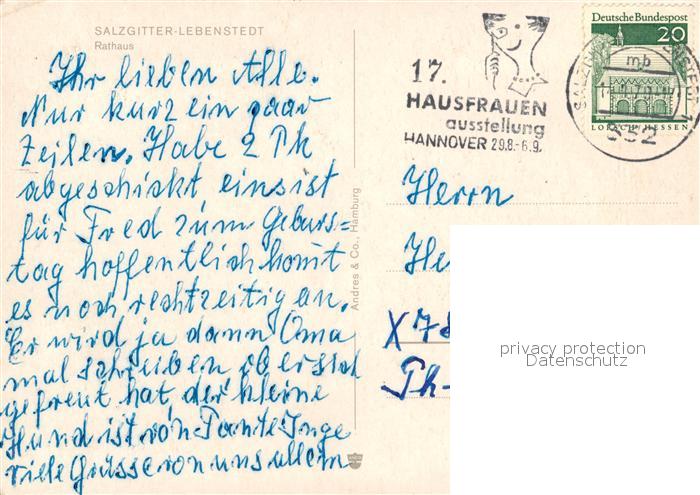 SALZGITTER-LEBENSTEDT
Rathaus
Ihr lieben Alle.
Nur kurz ein paar
Zeilen. Habe 2 Pk
abgeschickt, eins ist
für Fred zum Geburs=
tag hoffentlich komt
es noch rechtzeitig an.
Er wird ja dann Oma
mal schreiben ob er sich
gefreut hat der kleine
Hund ist von Tante Inge
viele Grüsse von uns allem
Andres & Co., Hamburg
17.
HAUSFRAUEN
ausstellung
HANNOVER 29.8.-6.9.
Deutsche Bundespost
20
LORSCH/HESSEN
mb
332
Herrn
He
X 78
Ph-
privacy protection
Datenschutz